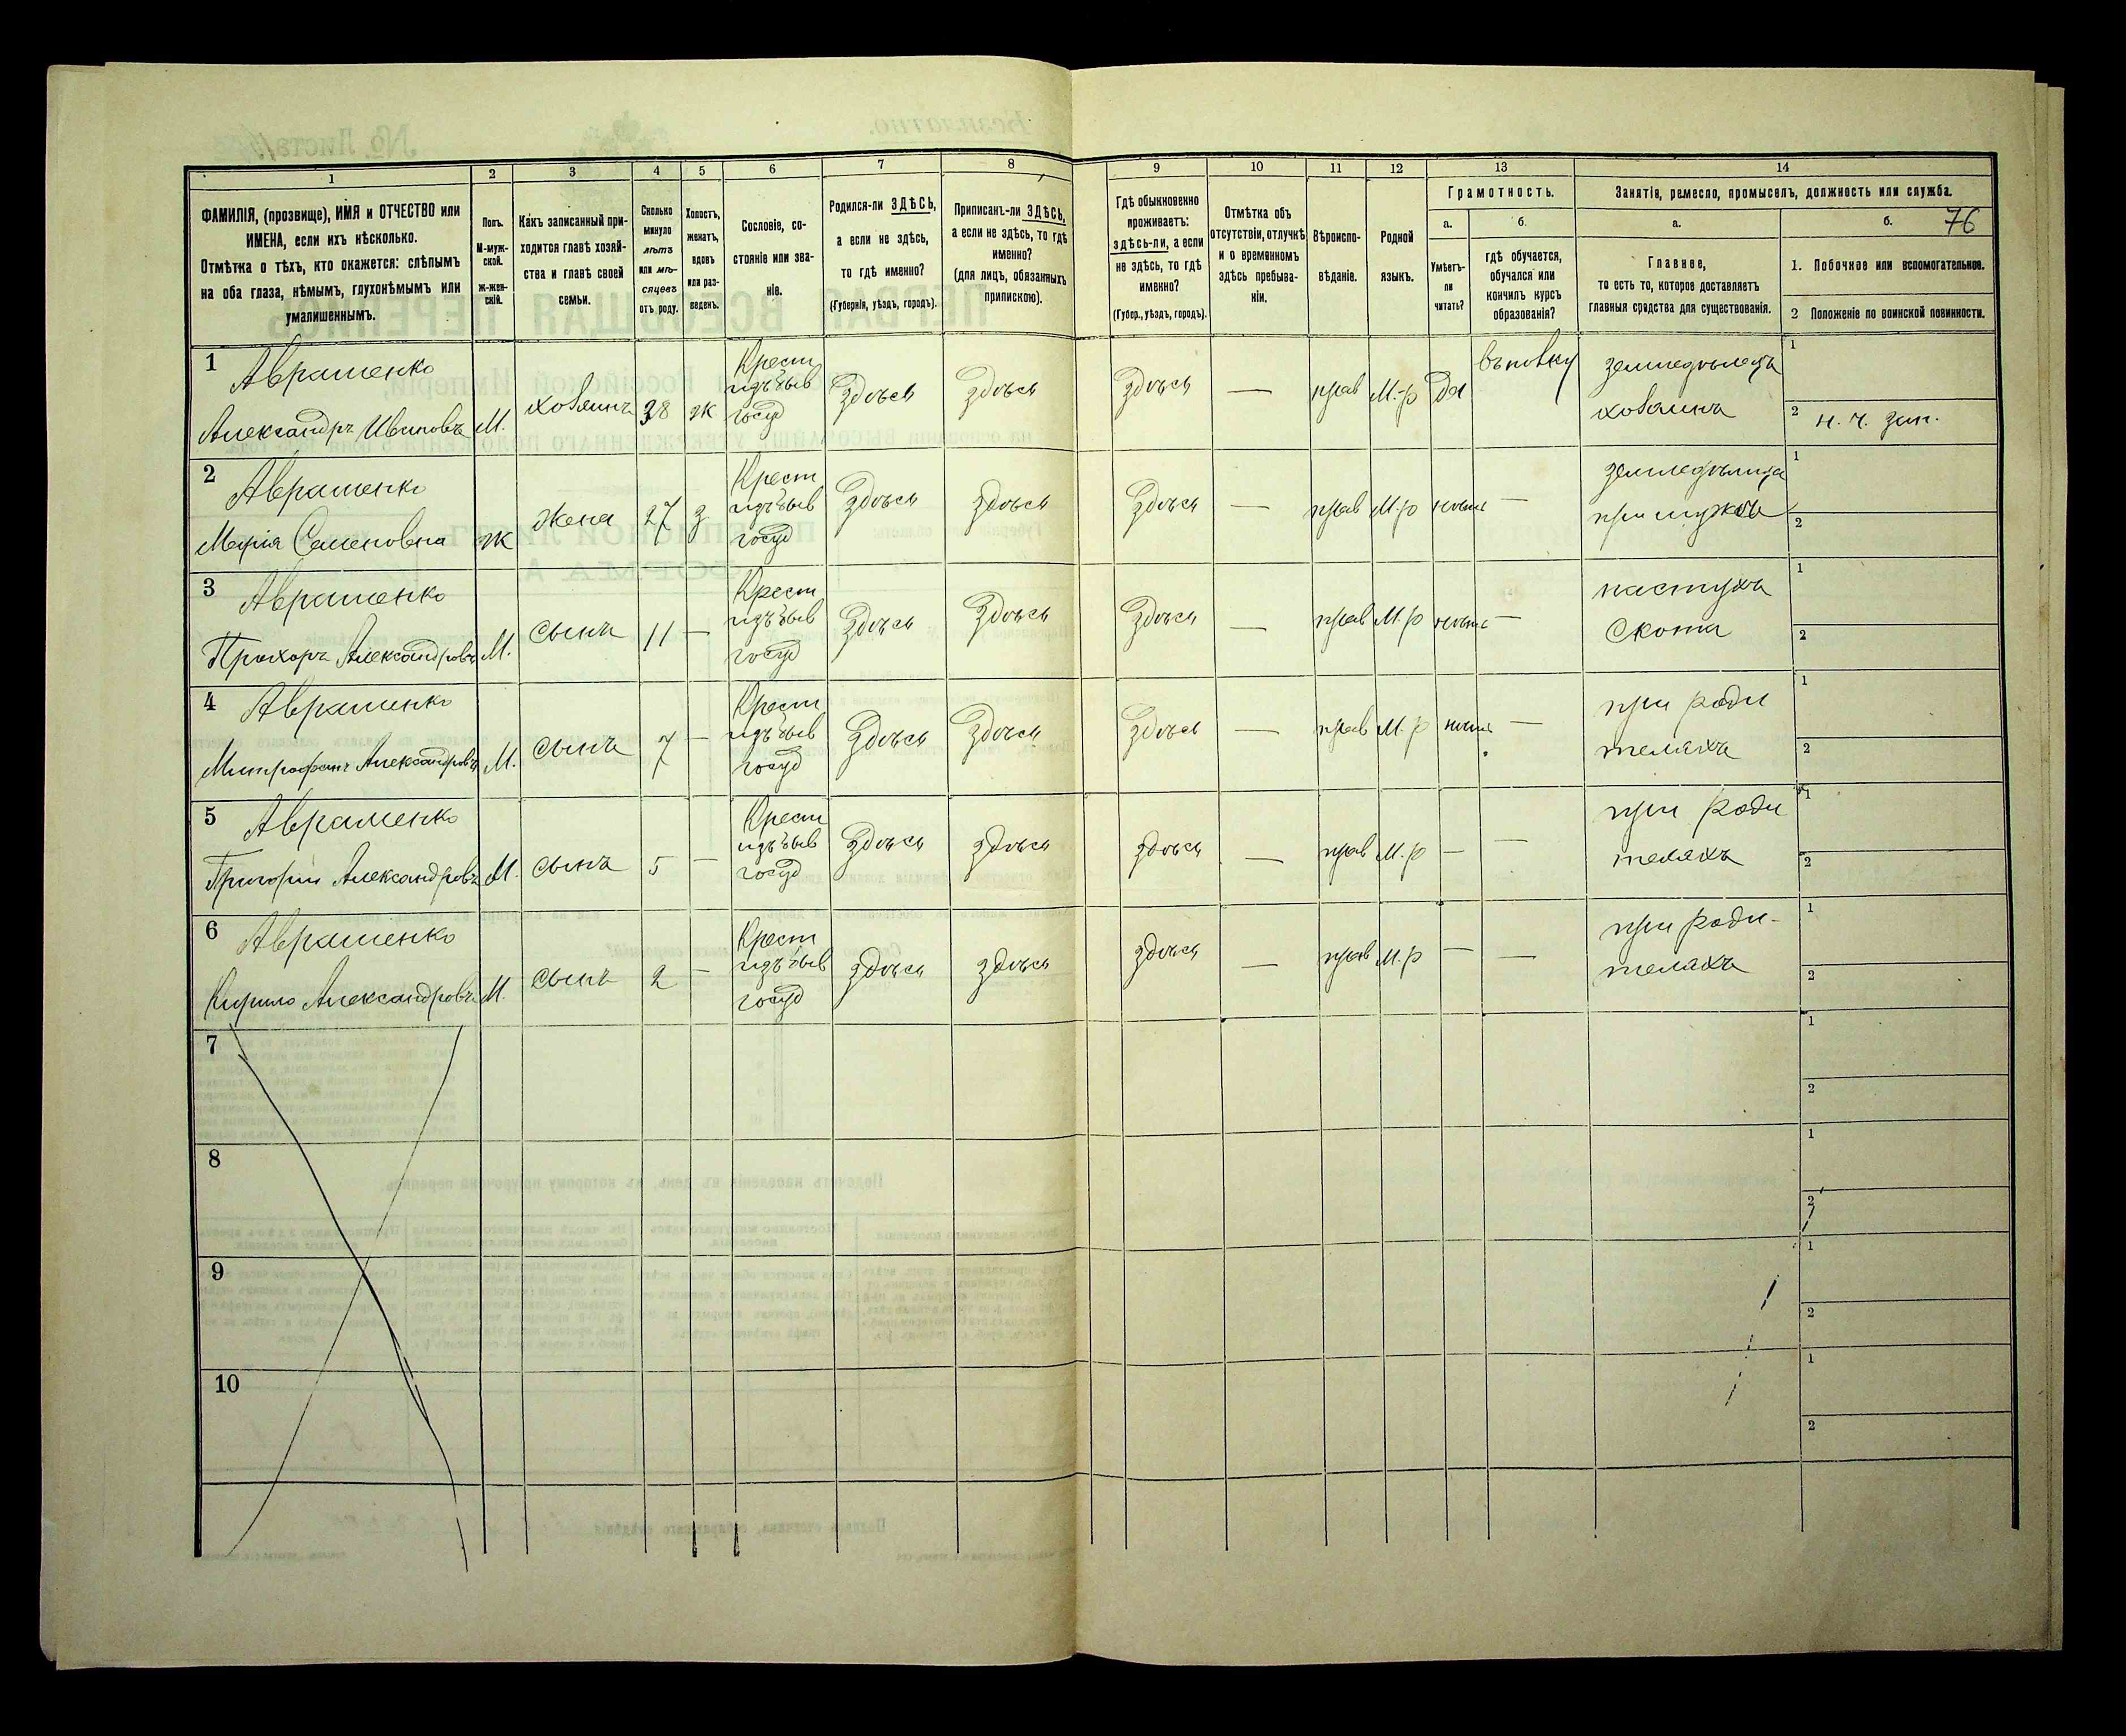 1 2 3 4 5 6 7 8 9 10 11 12 13 14
ФАМИЛІЯ, (прозвище), ИМЯ и ОТЧЕСТВО или
ИМЕНА, если ихъ нѣсколько.
Отмѣтка о тѣхъ, кто окажется: слѣпымъ
на оба глаза, нѣмымъ, глухонѣмымъ или
умалишеннымъ.
Полъ.
М-муж-
ской.
ж-жен-
скій.
Какъ записанный при-
ходится главѣ хозяй-
ства и главѣ своей
семьи.
Сколько
минуло
лѣтъ
или мѣ-
сяцевъ
отъ роду.
Холостъ,
женатъ,
вдовъ
или раз-
веденъ.
Сословіе, со-
стояніе или зва-
ніе.
Родился-ли ЗДѢСЬ,
а если не здѣсь,
то гдѣ именно?
(Губернія, уѣздъ, городъ).
Приписанъ-ли ЗДѢСЬ,
а если не здѣсь, то гдѣ
именно?
(для лицъ, обязанныхъ
припискою).
Гдѣ обыкновенно
проживаетъ:
здѣсь-ли, а если
не здѣсь, то гдѣ
именно?
(Губер., уѣздъ, городъ).
Отмѣтка объ
отсутствіи, отлучкѣ
и о временномъ
здѣсь пребыва-
ніи.
Вѣроиспо-
вѣданіе.
Родной
языкъ.
Грамотность.
а.
Умѣетъ-
ли
читать?
б.
гдѣ обучается,
обучался или
кончилъ курсъ
образованія?
Занятія, ремесло, промыселъ, должность или служба.
а.
Главное,
то есть то, которое доставляетъ
главныя средства для существованія.
б. 76
1. Побочное или вспомогательное.
2 Положеніе по воинской повинности.
1 Авраменко
Александръ Ивановъ
М.
хозяинъ
38
ж
Крест
изъ быв
госуд
здѣсь
здѣсь
здѣсь
—
прав
М.-р
да
земледѣлецъ
хозяинъ
1
2 н. ч. зап.
2 Авраменко
Марія Семеновна
ж
жена
27
з
Крест
изъ быв
госуд
здѣсь
здѣсь
здѣсь
—
прав
М.р
нѣтъ
—
земледѣлица
при мужѣ
1
2
3 Авраменко
Прохоръ Александровъ
М.
сынъ
11
—
Крест
изъ быв
госуд
здѣсь
здѣсь
здѣсь
—
прав
М.р
нѣтъ
—
пастухъ
скота
1
2
4 Авраменко
Митрофанъ Александровъ
М.
сынъ
7
—
Крест
изъ быв
госуд
здѣсь
здѣсь
здѣсь
—
прав
М.р
нѣтъ
—
при роди
теляхъ
1
2
5 Авраменко
Григорій Александровъ
М.
сынъ
5
—
Крест
изъ быв
госуд
здѣсь
здѣсь
здѣсь
—
прав
М.р
—
—
при роди
теляхъ
1
2
6 Авраменко
Кирило Александровъ
М.
сынъ
2
—
Крест
изъ быв
госуд
здѣсь
здѣсь
здѣсь
—
прав
М.р
—
—
при роди-
теляхъ
1
2
7
1
2
8
1
2
9
1
2
10
1
2